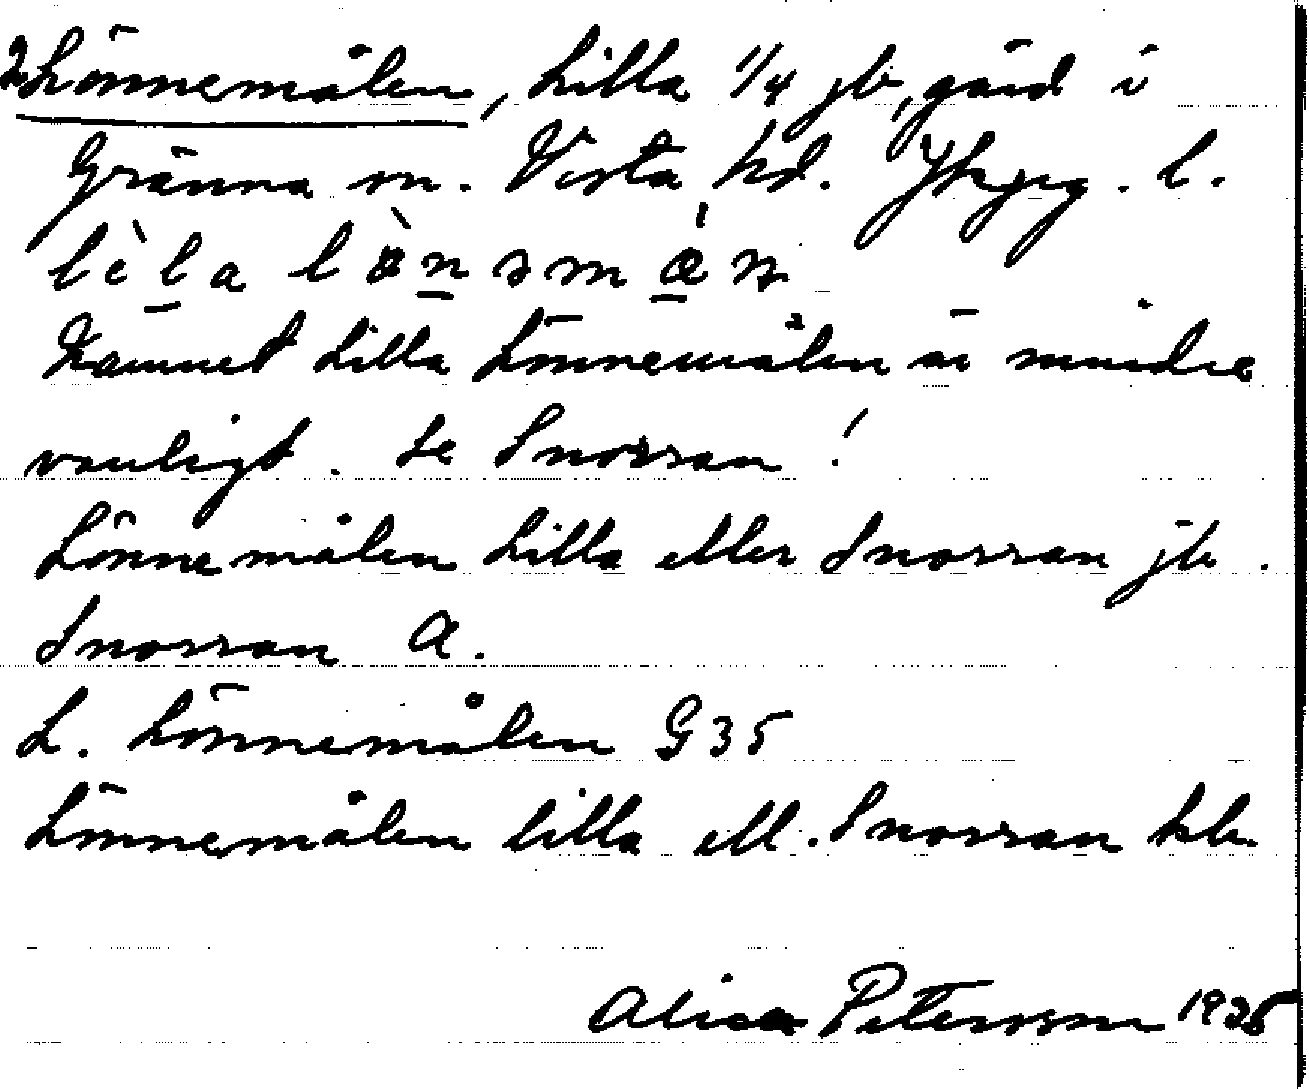 Lönnemålen, Lilla 1/4 jb, gård i
Gränna sn. Vista hd. Jkpg. l.
Namnet Lilla Lönnemålen är mindre
vanligt. Se Snorran!
Lönnemålen Lilla eller Snorran jb.
Snorran A.
L. Lönnemålen G35
Lönnemålen lilla ell. Snorran
Petersson 1935